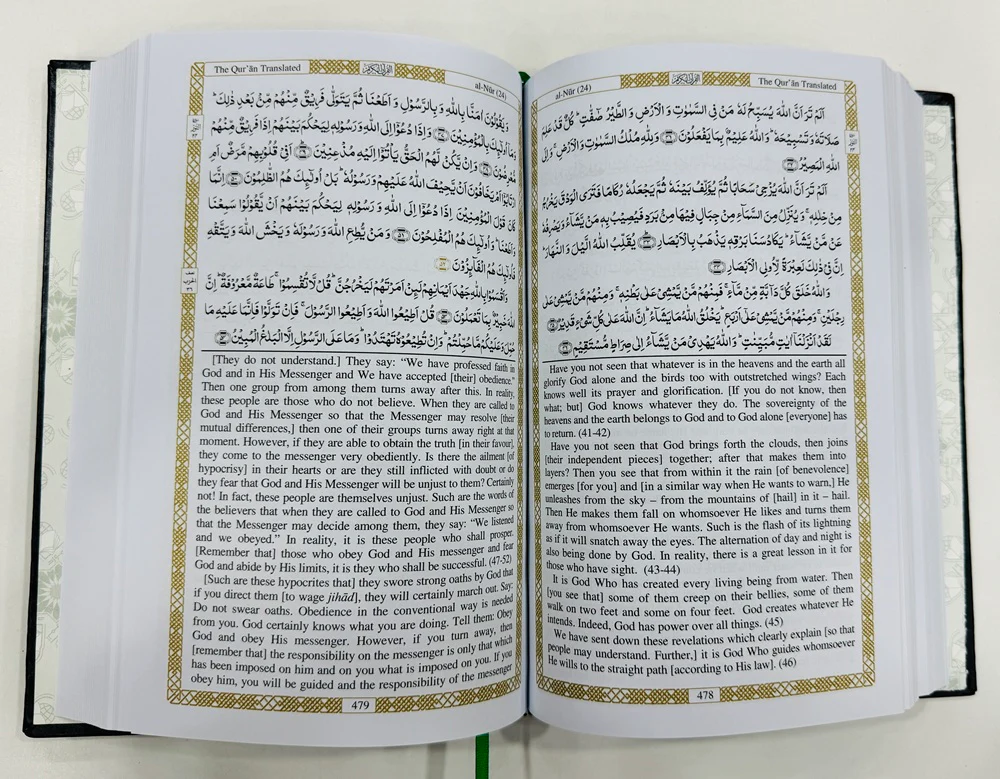 al-Nūr (24)
القرآن الكريم
The Qur'ān Translated
اَلَمْ تَرَ اَنَّ اللّٰهَ يُسَبِّحُ لَهٗ مَنْ فِى السَّمٰوٰتِ وَالْاَرْضِ وَالطَّيْرُ صٰٓفّٰتٍ ؕ كُلٌّ قَدْ عَلِمَ
صَلَاتَهٗ وَتَسْبِيْحَهٗ ؕ وَاللّٰهُ عَلِيْمٌۢ بِمَا يَفْعَلُوْنَ ﴿۴۱﴾ وَلِلّٰهِ مُلْكُ السَّمٰوٰتِ وَالْاَرْضِ ۚ وَاِلَى
اللّٰهِ الْمَصِيْرُ ﴿۴۲﴾
اَلَمْ تَرَ اَنَّ اللّٰهَ يُزْجِىْ سَحَابًا ثُمَّ يُؤَلِّفُ بَيْنَهٗ ثُمَّ يَجْعَلُهٗ رُكَامًا فَتَرَى الْوَدْقَ يَخْرُجُ
مِنْ خِلٰلِهٖ ۚ وَيُنَزِّلُ مِنَ السَّمَآءِ مِنْ جِبَالٍ فِيْهَا مِنْۢ بَرَدٍ فَيُصِيْبُ بِهٖ مَنْ يَّشَآءُ وَيَصْرِفُهٗ
عَنْ مَّنْ يَّشَآءُ ؕ يَكَادُ سَنَا بَرْقِهٖ يَذْهَبُ بِالْاَبْصَارِ ﴿۴۳﴾ يُقَلِّبُ اللّٰهُ الَّيْلَ وَالنَّهَارَ ؕ
اِنَّ فِىْ ذٰلِكَ لَعِبْرَةً لِّاُولِى الْاَبْصَارِ ﴿۴۴﴾
وَاللّٰهُ خَلَقَ كُلَّ دَآبَّةٍ مِّنْ مَّآءٍ ۚ فَمِنْهُمْ مَّنْ يَّمْشِىْ عَلٰى بَطْنِهٖ ۚ وَمِنْهُمْ مَّنْ يَّمْشِىْ عَلٰى
رِجْلَيْنِ ۚ وَمِنْهُمْ مَّنْ يَّمْشِىْ عَلٰٓى اَرْبَعٍ ؕ يَخْلُقُ اللّٰهُ مَا يَشَآءُ ؕ اِنَّ اللّٰهَ عَلٰى كُلِّ شَىْءٍ قَدِيْرٌ ﴿۴۵﴾
لَقَدْ اَنْزَلْنَآ اٰيٰتٍ مُّبَيِّنٰتٍ ؕ وَاللّٰهُ يَهْدِىْ مَنْ يَّشَآءُ اِلٰى صِرَاطٍ مُّسْتَقِيْمٍ ﴿۴۶﴾
Have you not seen that whatever is in the heavens and the earth all
glorify God alone and the birds too with outstretched wings? Each
knows well its prayer and glorification. [If you do not know, then
what; but] God knows whatever they do. The sovereignty of the
heavens and the earth belongs to God and to God alone [everyone] has
to return. (41-42)
Have you not seen that God brings forth the clouds, then joins
[their independent pieces] together; after that makes them into
layers? Then you see that from within it the rain [of benevolence]
emerges [for you] and [in a similar way when He wants to warn,] He
unleashes from the sky – from the mountains of [hail] in it – hail.
Then He makes them fall on whomsoever He likes and turns them
away from whomsoever He wants. Such is the flash of its lightning
as if it will snatch away the eyes. The alternation of day and night is
also being done by God. In reality, there is a great lesson in it for
those who have sight. (43-44)
It is God Who has created every living being from water. Then
[you see that] some of them creep on their bellies, some of them
walk on two feet and some on four feet. God creates whatever He
intends. Indeed, God has power over all things. (45)
We have sent down these revelations which clearly explain [so that
people may understand. Further,] it is God Who guides whomsoever
He wills to the straight path [according to His law]. (46)
478
The Qur'ān Translated
القرآن الكريم
al-Nūr (24)
وَيَقُوْلُوْنَ اٰمَنَّا بِاللّٰهِ وَبِالرَّسُوْلِ وَاَطَعْنَا ثُمَّ يَتَوَلّٰى فَرِيْقٌ مِّنْهُمْ مِّنْۢ بَعْدِ ذٰلِكَ ؕ
وَمَآ اُولٰٓئِكَ بِالْمُؤْمِنِيْنَ ﴿۴۷﴾ وَاِذَا دُعُوْٓا اِلَى اللّٰهِ وَرَسُوْلِهٖ لِيَحْكُمَ بَيْنَهُمْ اِذَا فَرِيْقٌ مِّنْهُمْ
مُّعْرِضُوْنَ ﴿۴۸﴾ وَاِنْ يَّكُنْ لَّهُمُ الْحَقُّ يَاْتُوْٓا اِلَيْهِ مُذْعِنِيْنَ ﴿۴۹﴾ اَفِىْ قُلُوْبِهِمْ مَّرَضٌ اَمِ
ارْتَابُوْٓا اَمْ يَخَافُوْنَ اَنْ يَّحِيْفَ اللّٰهُ عَلَيْهِمْ وَرَسُوْلُهٗ ؕ بَلْ اُولٰٓئِكَ هُمُ الظّٰلِمُوْنَ ﴿۵۰﴾ اِنَّمَا
كَانَ قَوْلَ الْمُؤْمِنِيْنَ اِذَا دُعُوْٓا اِلَى اللّٰهِ وَرَسُوْلِهٖ لِيَحْكُمَ بَيْنَهُمْ اَنْ يَّقُوْلُوْا سَمِعْنَا
وَاَطَعْنَا ؕ وَاُولٰٓئِكَ هُمُ الْمُفْلِحُوْنَ ﴿۵۱﴾ وَمَنْ يُّطِعِ اللّٰهَ وَرَسُوْلَهٗ وَيَخْشَ اللّٰهَ وَيَتَّقْهِ
فَاُولٰٓئِكَ هُمُ الْفَآئِزُوْنَ ﴿۵۲﴾
وَاَقْسَمُوْا بِاللّٰهِ جَهْدَ اَيْمَانِهِمْ لَئِنْ اَمَرْتَهُمْ لَيَخْرُجُنَّ ؕ قُلْ لَّا تُقْسِمُوْا ۚ طَاعَةٌ مَّعْرُوْفَةٌ ؕ اِنَّ
اللّٰهَ خَبِيْرٌۢ بِمَا تَعْمَلُوْنَ ﴿۵۳﴾ قُلْ اَطِيْعُوا اللّٰهَ وَاَطِيْعُوا الرَّسُوْلَ ۚ فَاِنْ تَوَلَّوْا فَاِنَّمَا عَلَيْهِ مَا
حُمِّلَ وَعَلَيْكُمْ مَّا حُمِّلْتُمْ ؕ وَاِنْ تُطِيْعُوْهُ تَهْتَدُوْا ؕ وَمَا عَلَى الرَّسُوْلِ اِلَّا الْبَلٰغُ الْمُبِيْنُ ﴿۵۴﴾
[They do not understand.] They say: “We have professed faith in
God and in His Messenger and We have accepted [their] obedience."
Then one group from among them turns away after this. In reality,
these people are those who do not believe. When they are called to
God and His Messenger so that the Messenger may resolve [their
mutual differences,] then one of their groups turns away right at that
moment. However, if they are able to obtain the truth [in their favour],
they come to the messenger very obediently. Is there the ailment [of
hypocrisy] in their hearts or are they still inflicted with doubt or do
they fear that God and His Messenger will be unjust to them? Certainly
not! In fact, these people are themselves unjust. Such are the words of
the believers that when they are called to God and His Messenger so
that the Messenger may decide among them, they say: “We listened
and we obeyed.” In reality, it is these people who shall prosper.
[Remember that] those who obey God and His messenger and fear
God and abide by His limits, it is they who shall be successful. (47-52)
[Such are these hypocrites that] they swore strong oaths by God that
if you direct them [to wage jihād], they will certainly march out. Say:
Do not swear oaths. Obedience in the conventional way is needed
from you. God certainly knows what you are doing. Tell them: Obey
God and obey His messenger. However, if you turn away, then
[remember that] the responsibility on the messenger is only that which
has been imposed on him and on you what is imposed on you. If you
obey him, you will be guided and the responsibility of the messenger
479